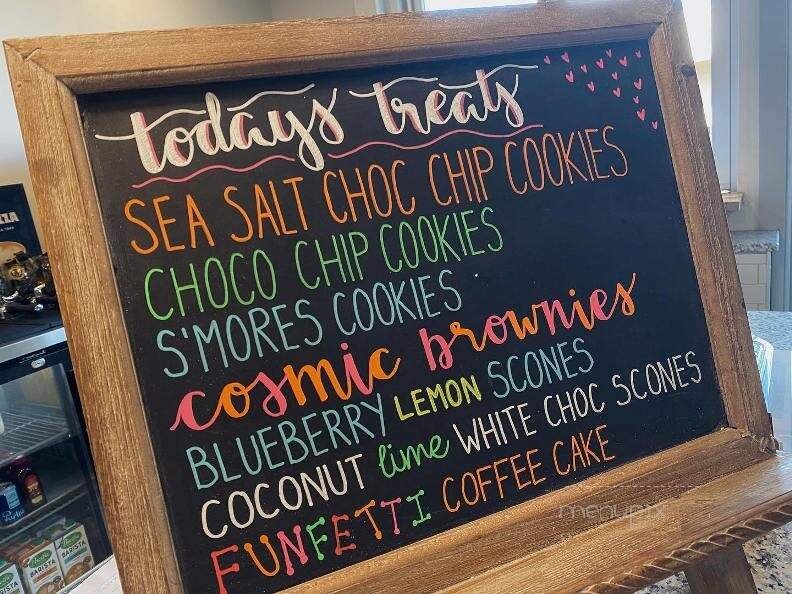 todays treats
SEA SALT CHOC CHIP COOKIES
CHOCO CHIP COOKIES
S'MORES COOKIES
cosmic brownies
BLUEBERRY LEMON SCONES
COCONUT lime WHITE CHOC SCONES
FUNFETTI COFFEE CAKE
menupix
BARISTA
BARISTA